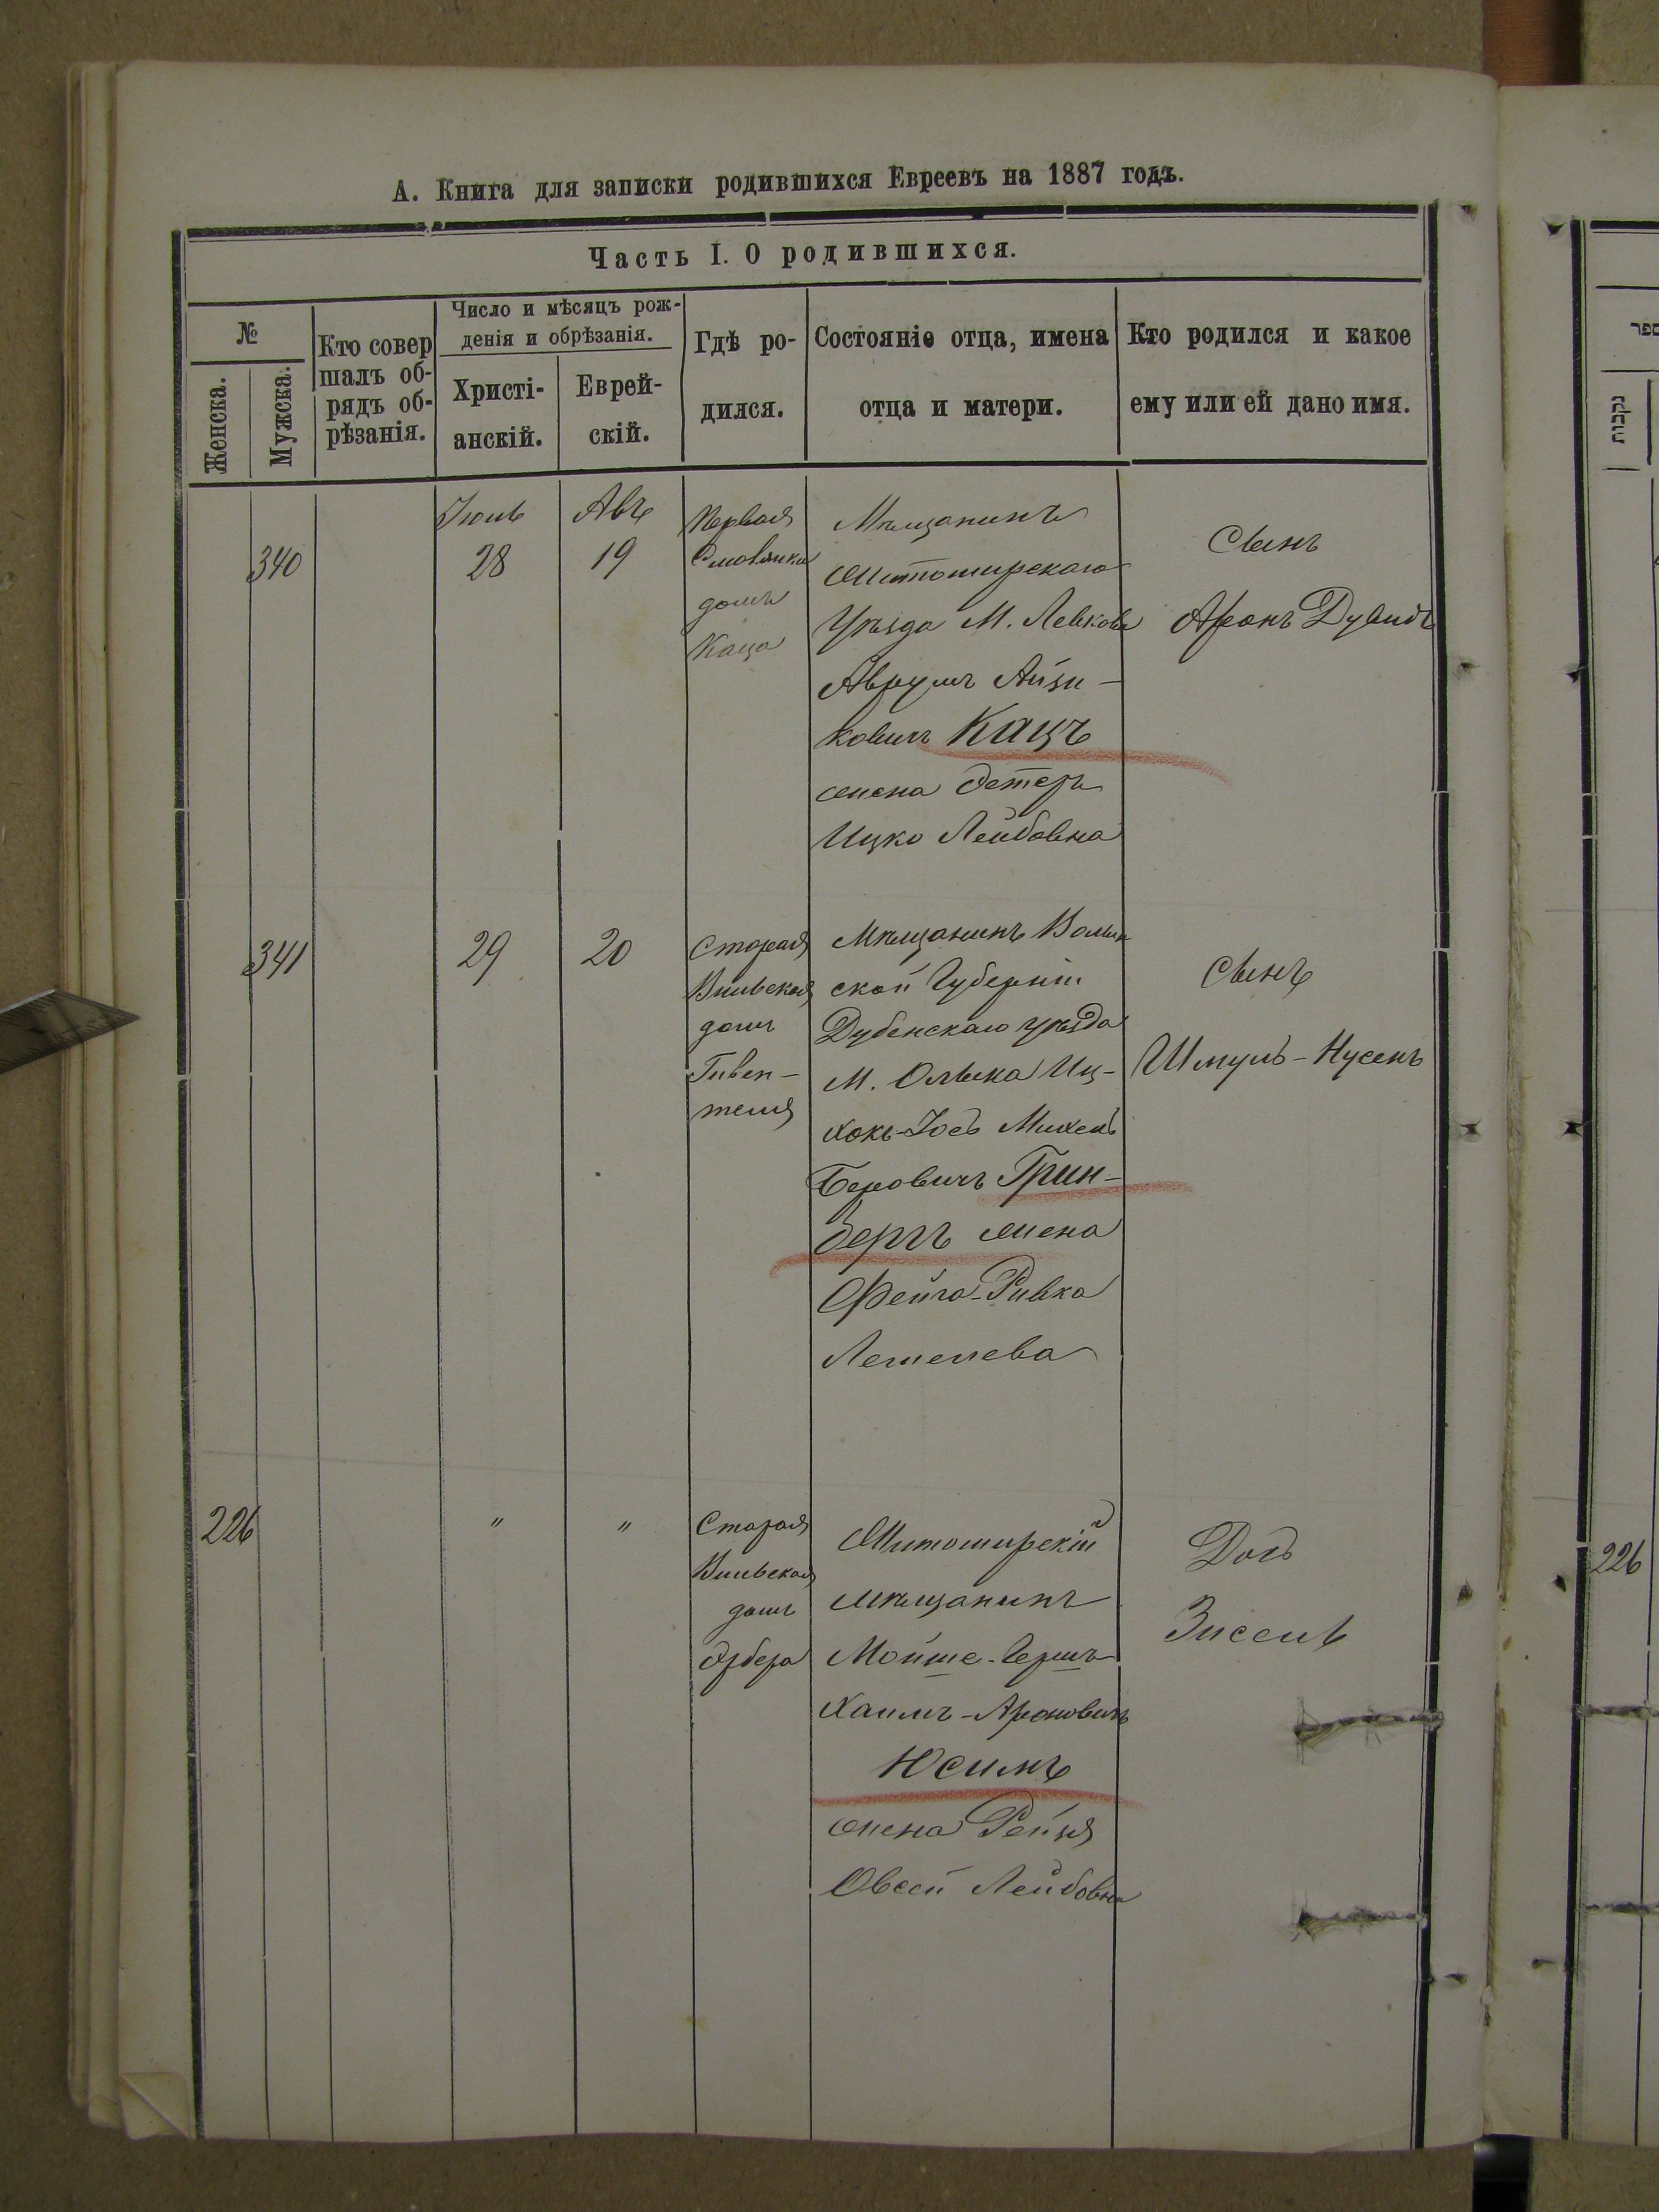 А. Книга для записки родившихся Евреевъ на 1887 годъ.
Часть I. О родившихся.
№
Женска.
Мужска.
Кто совер
шалъ об-
рядъ об-
рѣзанія.
Число и мѣсяцъ рож-
денія и обрѣзанія.
Христі-
анскій.
Еврей-
скій.
Гдѣ ро-
дился.
Состояніе отца, имена
отца и матери.
Кто родился и какое
ему или ей дано имя.
340
Июль
28
Авъ
19
Первая
домъ
Каца
Мѣщанинъ
Житомирскаго
Уѣзда М. Левкова
Аврумъ Айзи-
ковичъ Кацъ
жена Эстеръ
Ицко Лейбовна
Сынъ
Аронъ Дувидъ
341
29
20
Старая
Вильская
домъ
Гивен-
теля
Мѣщанинъ Волын
ской Губерніи
Дубенскаго уѣзда
М. Олыка Иц-
хокъ-Іось Михель
Беровичъ Грин-
бергъ жена
Фейга-Ривка
Сынъ
Шмуль-Нусенъ
226
"
"
Старая
Вильская
домъ
Эрбера
Житомирскій
мѣщанинъ
Мойше-Гершъ
Хаимъ-Ароновичъ
Юсимъ
жена Рейзя
Овсей Лейбовна
Дочь
Зисель
ספר
נקבות
226